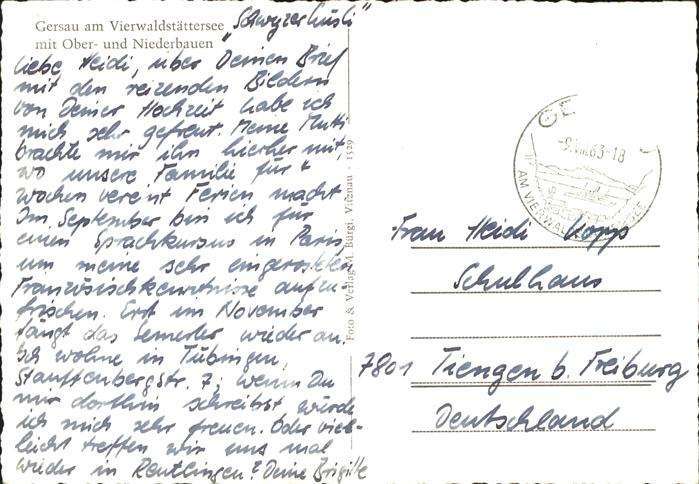 Gersau am Vierwaldstättersee
mit Ober- und Niederbauen
"Schwyzerhüsli"
Liebe Heidi, über Deinen Brief
mit den reizenden Bildern
von Deiner Hochzeit habe ich
mich sehr gefreut. Meine Mutti
brachte mir ihn hierher mit,
wo unsere Familie für 4
Wochen vereint Ferien macht.
Im September bin ich für
einen Sprachkursus in Paris
um meine sehr eingerosteten
Französischkenntnisse aufzu
frischen. Erst im November
fängt das Semester wieder an.
Ich wohne in Tübingen,
Stauffenbergstr. 7, wenn Du
mir dorthin schreibst würde
ich mich sehr freuen. Oder viel-
leicht treffen wir uns mal
wieder in Reutlingen? Deine Brigitte
Foto & Verlag A. Bürgi, Vitznau - 1529
GE
-9.VIII.63-18
AM VIERWAL
SEE
Frau Heidi Kopp
Schulhaus
7801 Tiengen b. Freiburg
Deutschland